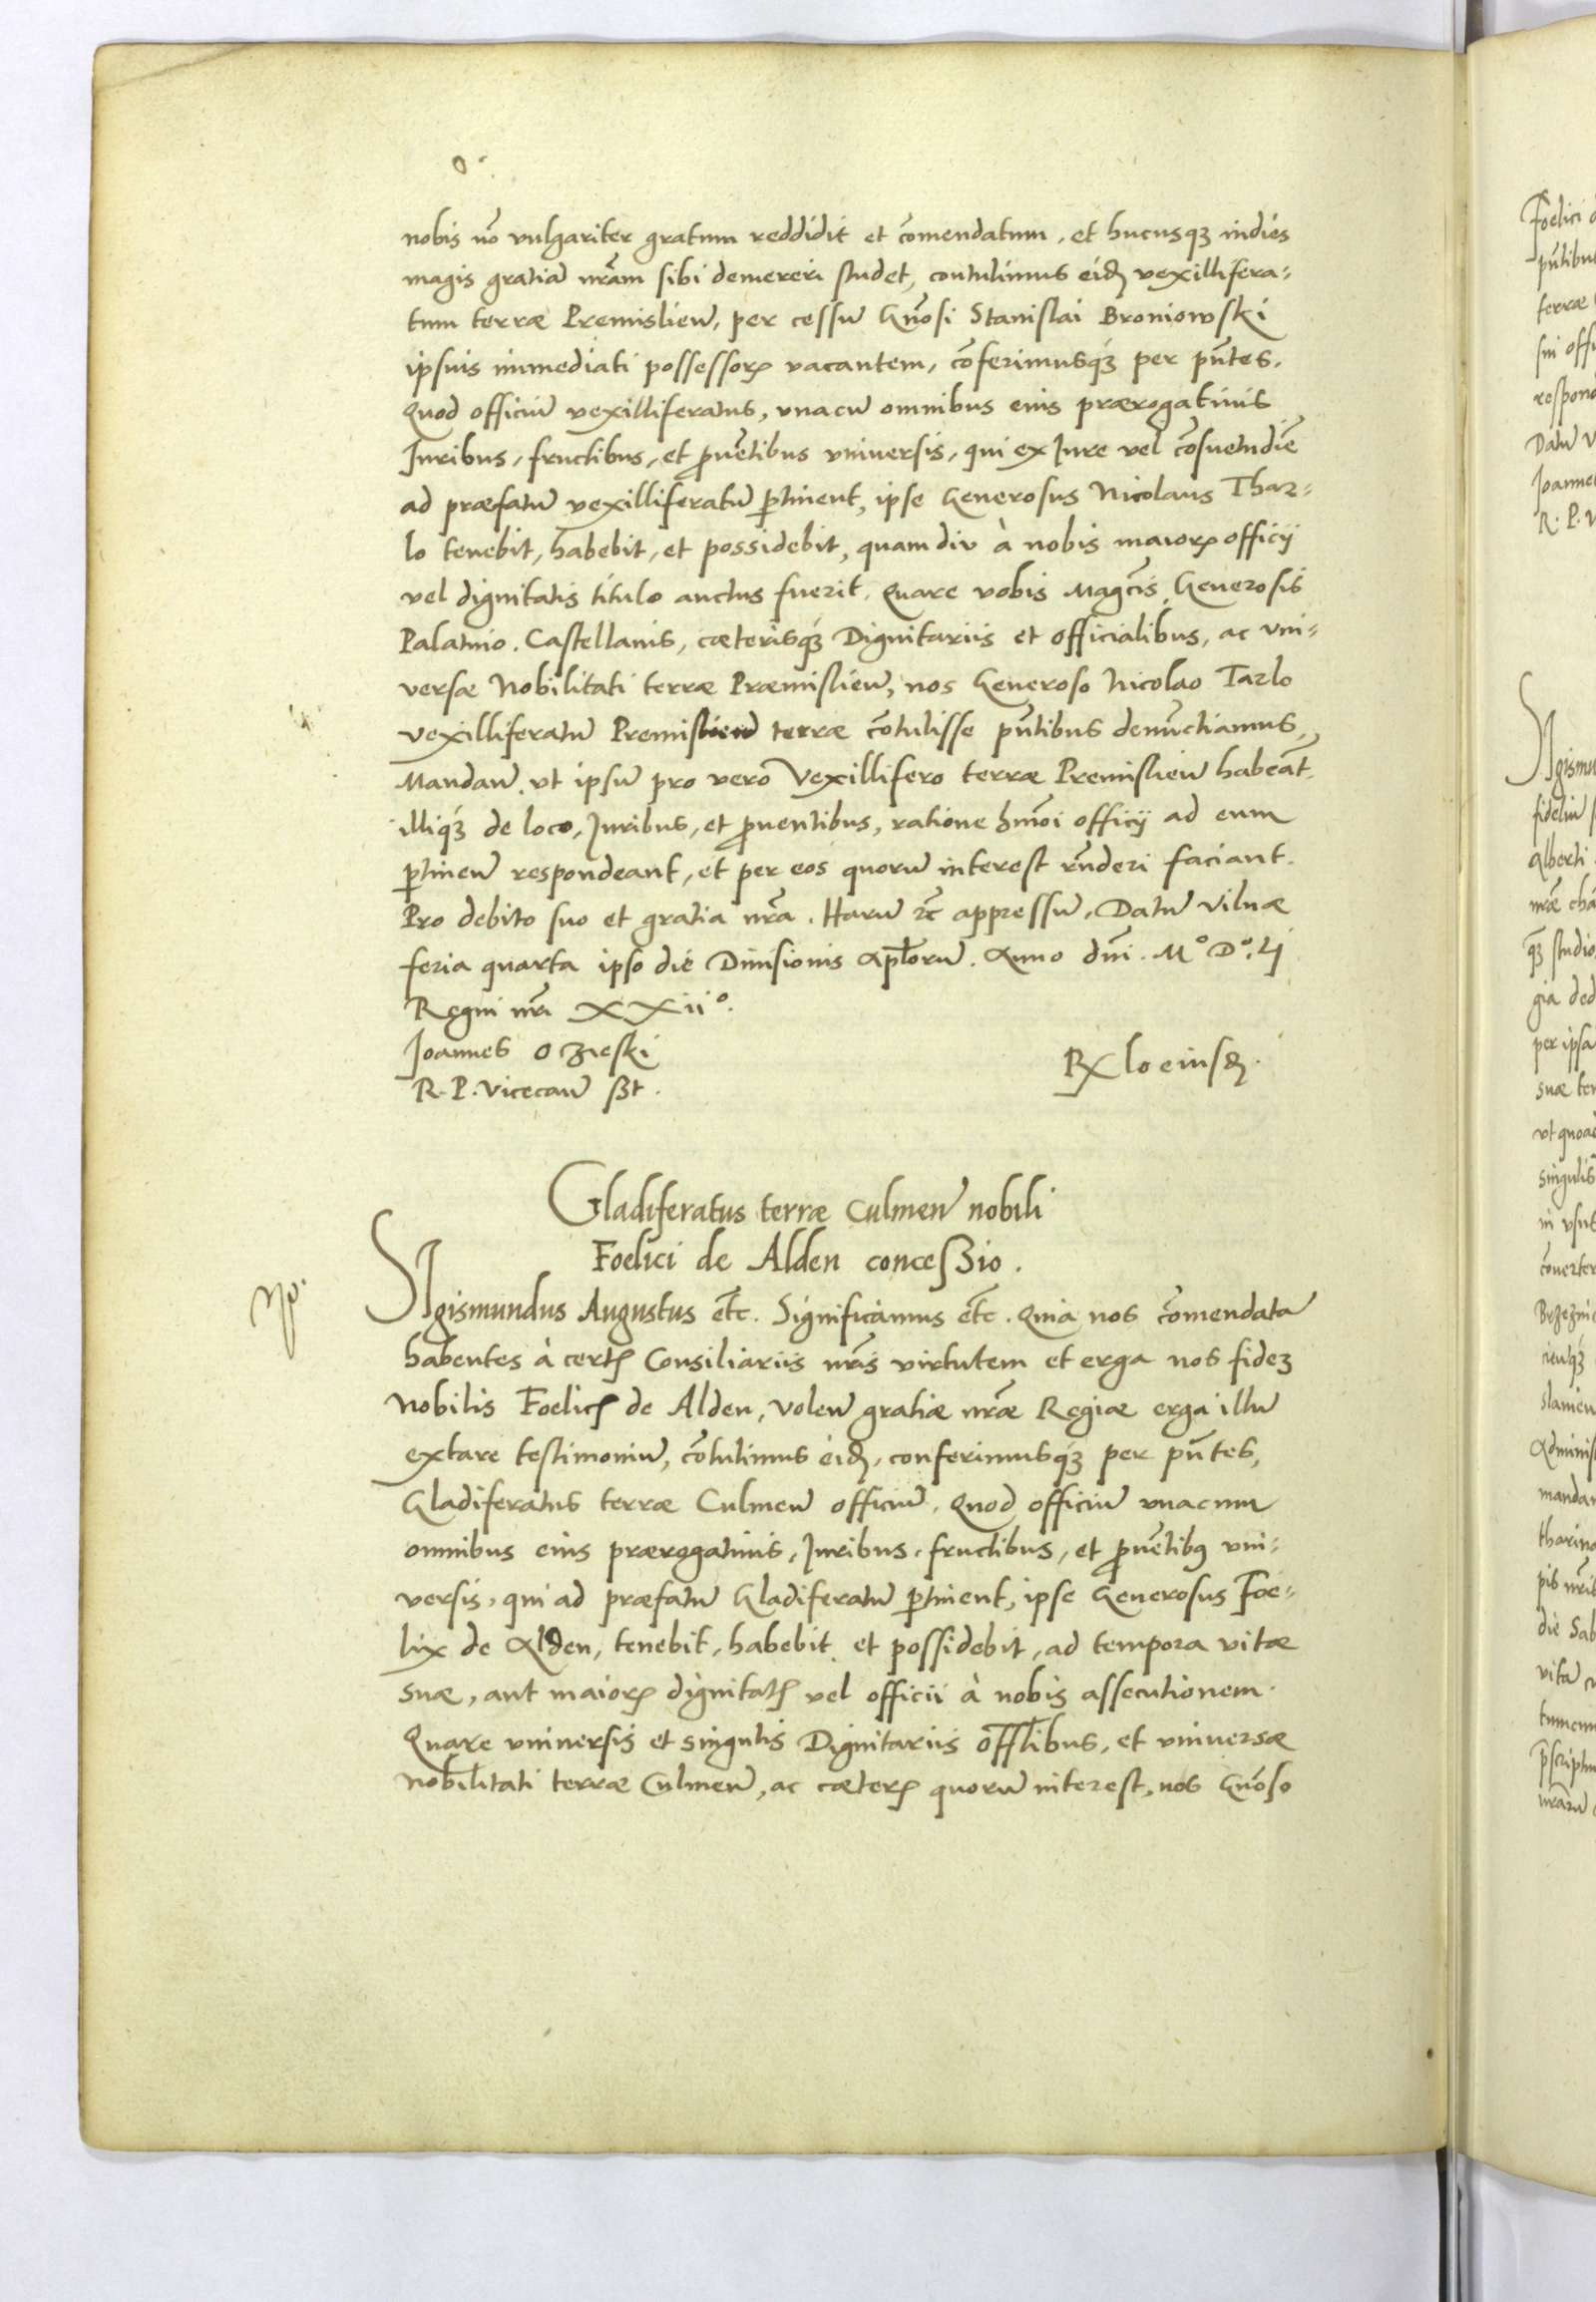 nobis nō vulgariter gratum reddidit et cōmendatum, et hucusqȝ indies
magis gratiā nr̄am sibi demereri studet, contulimus eidꝫ vexillifera=
tum terræ Premislien̄, per cessū Gn̄osi Stanislai Broniowski
ipsius immediati possessorꝭ vacantem, cōferimusqȝ per pn̄tes.
Quod officiū vexilliferatus, vnacū omnibus eius prærogatiuis
Iuribus, fructibus, et ꝓuētibus vniuersis, qui ex Iure vel cōsuetudīe
ad præfatū vexilliferatū ꝑtinent, ipse Generosus Nicolaus Thar=
lo tenebit, habebit, et possidebit, quamdiu à nobis maiorꝭ officij
vel dignitatis titulo auctus fuerit. Quare vobis Magc̄is Generosis
Palatino. Castellanis, cæterisqȝ Dignitariis et officialibus, ac vni=
versæ Nobilitati terræ Præmislien̄, nos Generoso Nicolao Tarlo
vexilliferatū Premislien̄ terræ cōtulisse pn̄tibus denūctiamus,
Mandan̄. vt ipsū pro vero Vexillifero terræ Premislien̄ habeāt.
illiqȝ de loco, Iuribus, et ꝓuentibus, ratione hm̄oi officij ad eum
ꝑtinen̄ respondeant, et per eos quorū interest rn̄deri faciant.
Pro debito suo et gratia nr̄a. Harū etc̄ appressū. Datū Vilnæ
feria quarta ipso die Diuisionis Apl̄orū. Anno dn̄i. M° D°. Lj
Regni nr̄i XXii°.
Joannes Oczieski
R. P. Vicecan̄ sst.
Rꝭ lo eiusdꝫ.
Gladiferatus terræ Culmen̄ nobili
Foelici de Alden conceſsio.
No.
SIgismundus Augustus etc̄. Significamus etc̄. Quia nos cōmendatā
habentes à certꝭ Consiliariis nr̄is virtutem et erga nos fideȝ
Nobilis Foelicꝭ de Alden, Volen̄ gratiæ nr̄æ Regiæ erga illū
extare testimoniū, cōtulimus eidꝫ, conferimusqȝ per pn̄tes,
Gladiferatus terræ Culmen̄ officiū. Quod officiū vnacum
omnibus eius prærogatiuis, Iuribus, fructibus, et ꝓuētibꝰ vni=
versis, qui ad præfatū Gladiferatū ꝑtinent, ipse Generosus Foe=
lix de Alden, tenebit, habebit, et possidebit, ad tempora vitæ
suæ, aut maiorꝭ dignitatꝭ vel officii à nobis assecutionem.
Quare vniuersis et singulis Dignitariis offl̄ibus, et vniuersæ
nobilitati terræ Culmen̄, ac cæterꝭ quorū interest, nos Gn̄oso